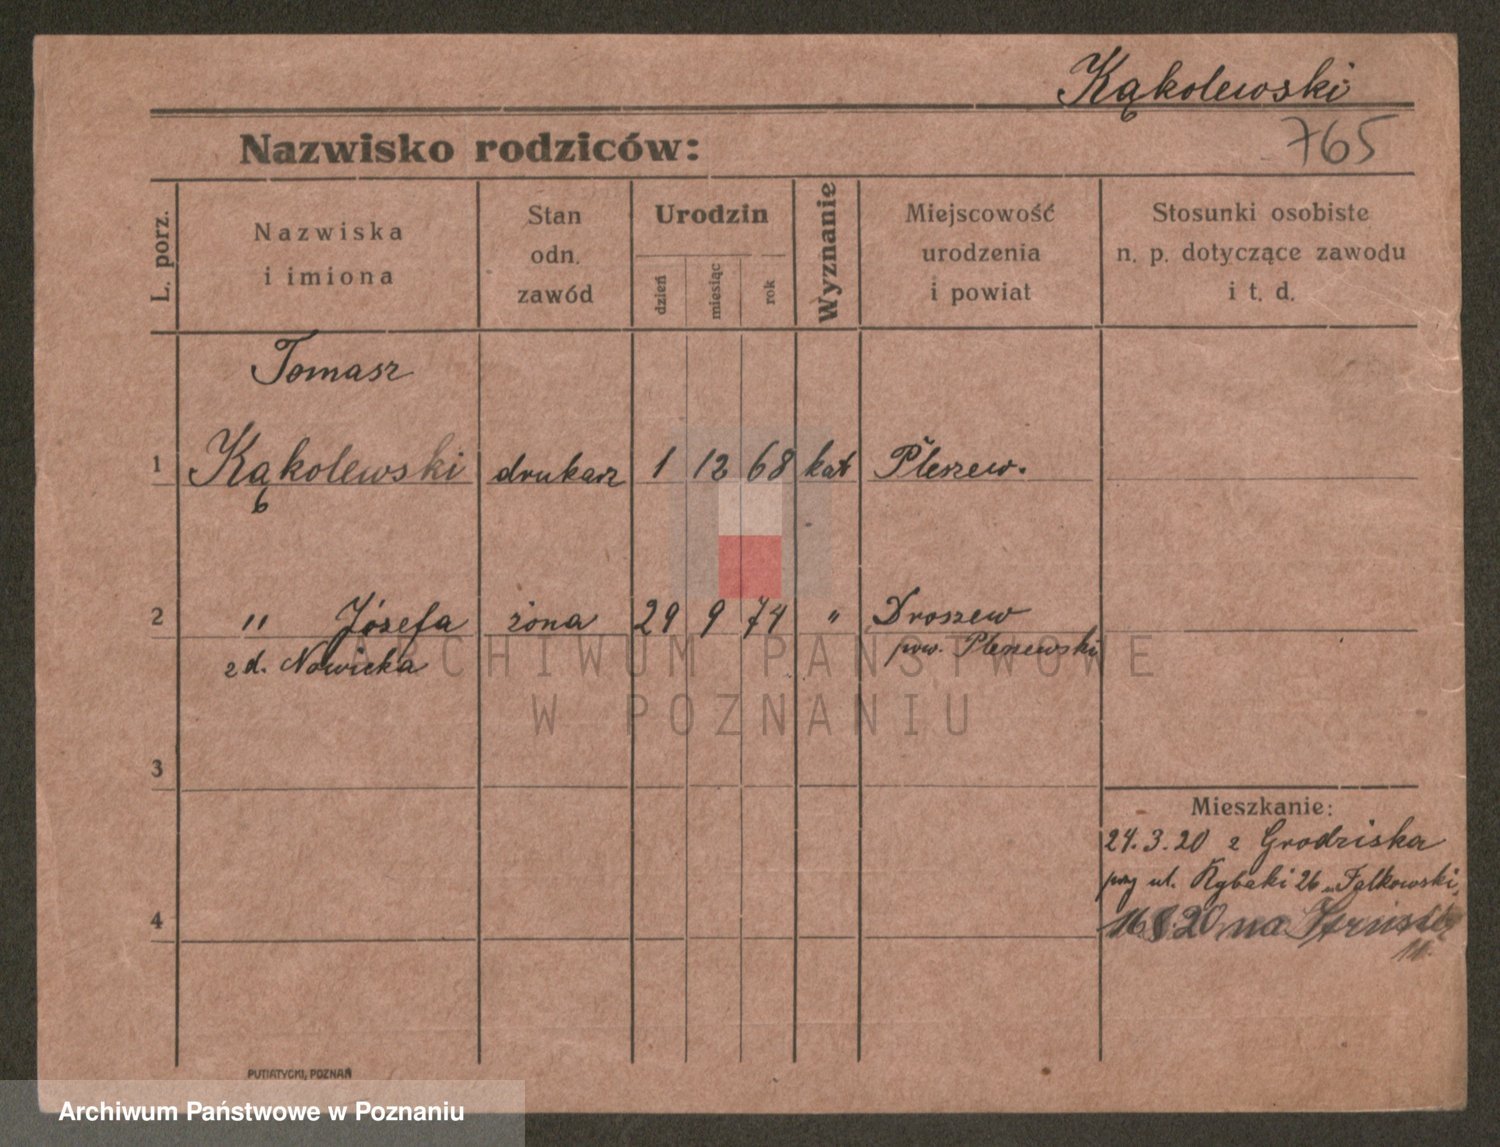 Kąkolewski
Nazwisko rodziców:
765
L. porz.
Nazwiska
i imiona
Stan
odn.
zawód
Urodzin
dzień
miesiąc
rok
Wyznanie
Miejscowość
urodzenia
i powiat
Stosunki osobiste
n. p. dotyczące zawodu
i t. d.
Tomasz
1 Kąkolewski drukarz 1 12 68 kat Pleszew.
2 " Józefa żona 29 9 74 " Droszew
z d. Nowicka pow. Pleszewski
ARCHIWUM PAŃSTWOWE
W POZNANIU
3
Mieszkanie:
24.3.20 z Grodziska
przy ul. Rybaki 26 Falkowski
4
16.8.20 na
11.
PUTIATYCKI, POZNAŃ
Archiwum Państwowe w Poznaniu